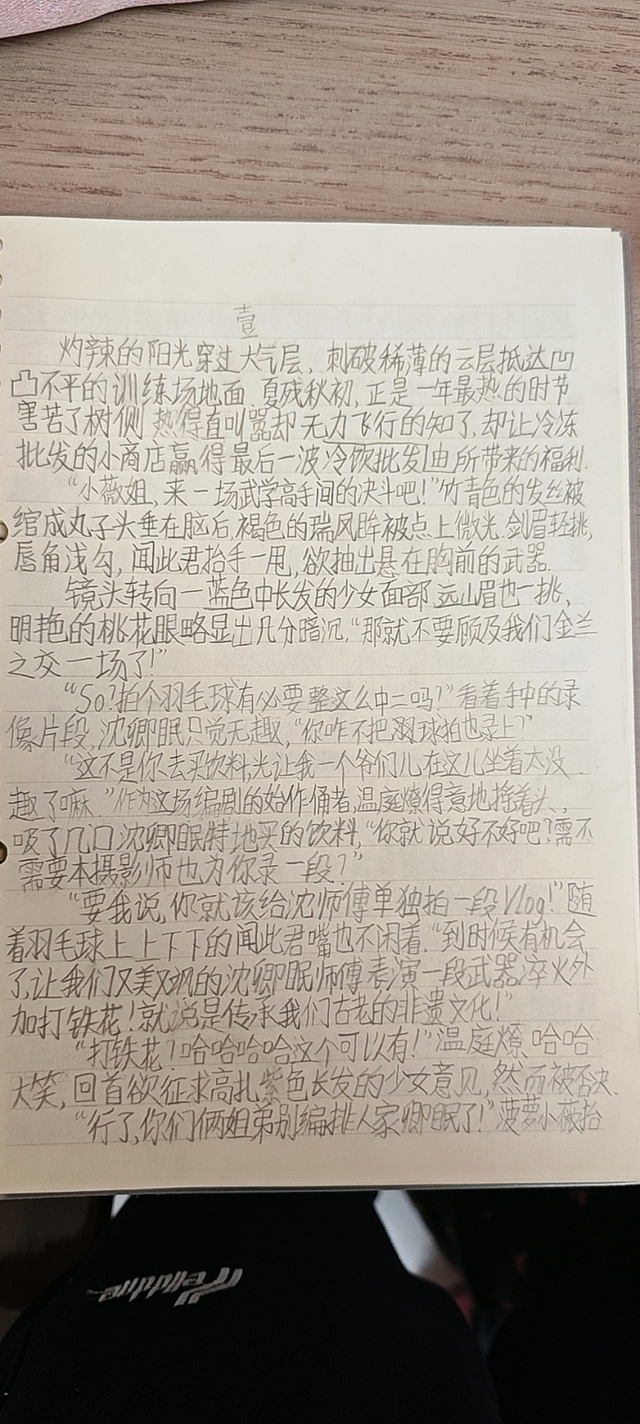 壹
灼辣的阳光穿过大气层、刺破稀薄的云层抵达凹
凸不平的训练场地面.夏残秋初,正是一年最热的时节
害苦了树侧 热得直叫嚣却无力飞行的知了,却让冷冻
批发的小商店赢得最后一波冷饮批发由所带来的福利.
“小薇姐,来一场武学高手间的决斗吧!”竹青色的发丝被
绾成丸子头垂在脑后,褐色的瑞凤眸被点上微光.剑眉轻挑,
唇角浅勾,闻此君抬手一甩,欲抽出悬在胸前的武器.
镜头转向一蓝色中长发的少女面部 远山眉也一挑,
明艳的桃花眼略显出几分暗沉,“那就不要顾及我们金兰
之交一场了!”
“So?拍个羽毛球有必要整这么中二吗?”看着手中的录
像片段,沈卿眠只觉无趣,“你咋不把羽球拍也录上?”
“这不是你去买饮料,光让我一个爷们儿在这儿坐着太没
趣了嘛.”作为这场编剧的始作俑者,温庭燎得意地摇着头,
吸了几口沈卿眠特地买的饮料,“你就说好不好吧?需不
需要本摄影师也为你录一段?”
“要我说,你就该给沈师傅单独拍一段Vlog!”随
着羽毛球上上下下的闻此君嘴也不闲着.“到时候有机会
了,让我们又美又飒的沈卿眠师傅表演一段武器淬火外
加打铁花!就说是传承我们古老的非遗文化!”
“打铁花?哈哈哈哈这个可以有!”温庭燎哈哈
大笑,回首欲征求高扎紫色长发的少女意见,然而被否决.
“行了,你们俩姐弟别编排人家卿眠了!”菠萝小薇抬